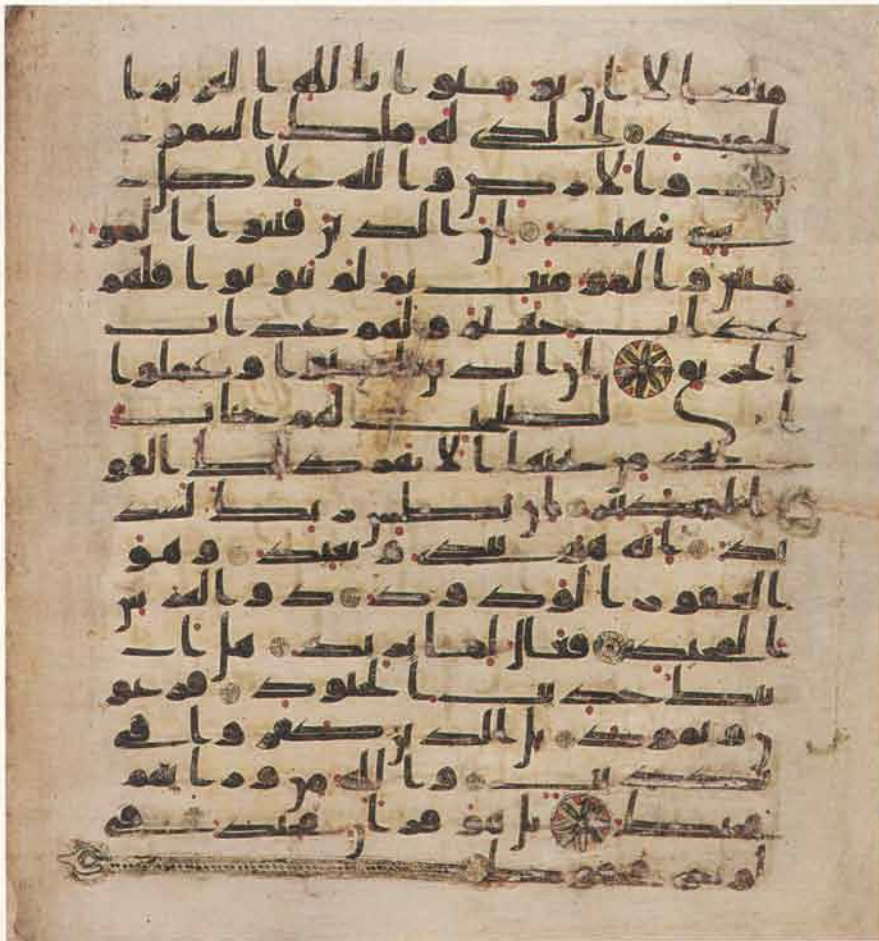 منهم الا ان يومنوا بالله العزيز ا
لحميد الذي له ملك السمو
ت والارض والله علا كل
شي شهيد ان الذين فتنوا المو
منين والمومنت ثم لم يتوبوا فلهم
عذاب جهنم ولهم عذاب
الحريق ان الذين امنوا وعملوا
ا لصلحت لهم جنت
تجري من تحتها الانهر ذلك الفو
ز الكبير ان بطش ربك لشد
يد انه هو يبدي ويعيد وهو
الغفور الودود ذو العرش
المجيد فعال لما يريد هل ات
يك حديث الجنود فرعو
ن وثمود بل الذين كفروا في
تكذيب والله من ورايهم
محيط بل هو قران مجيد في
لوح محفوظ